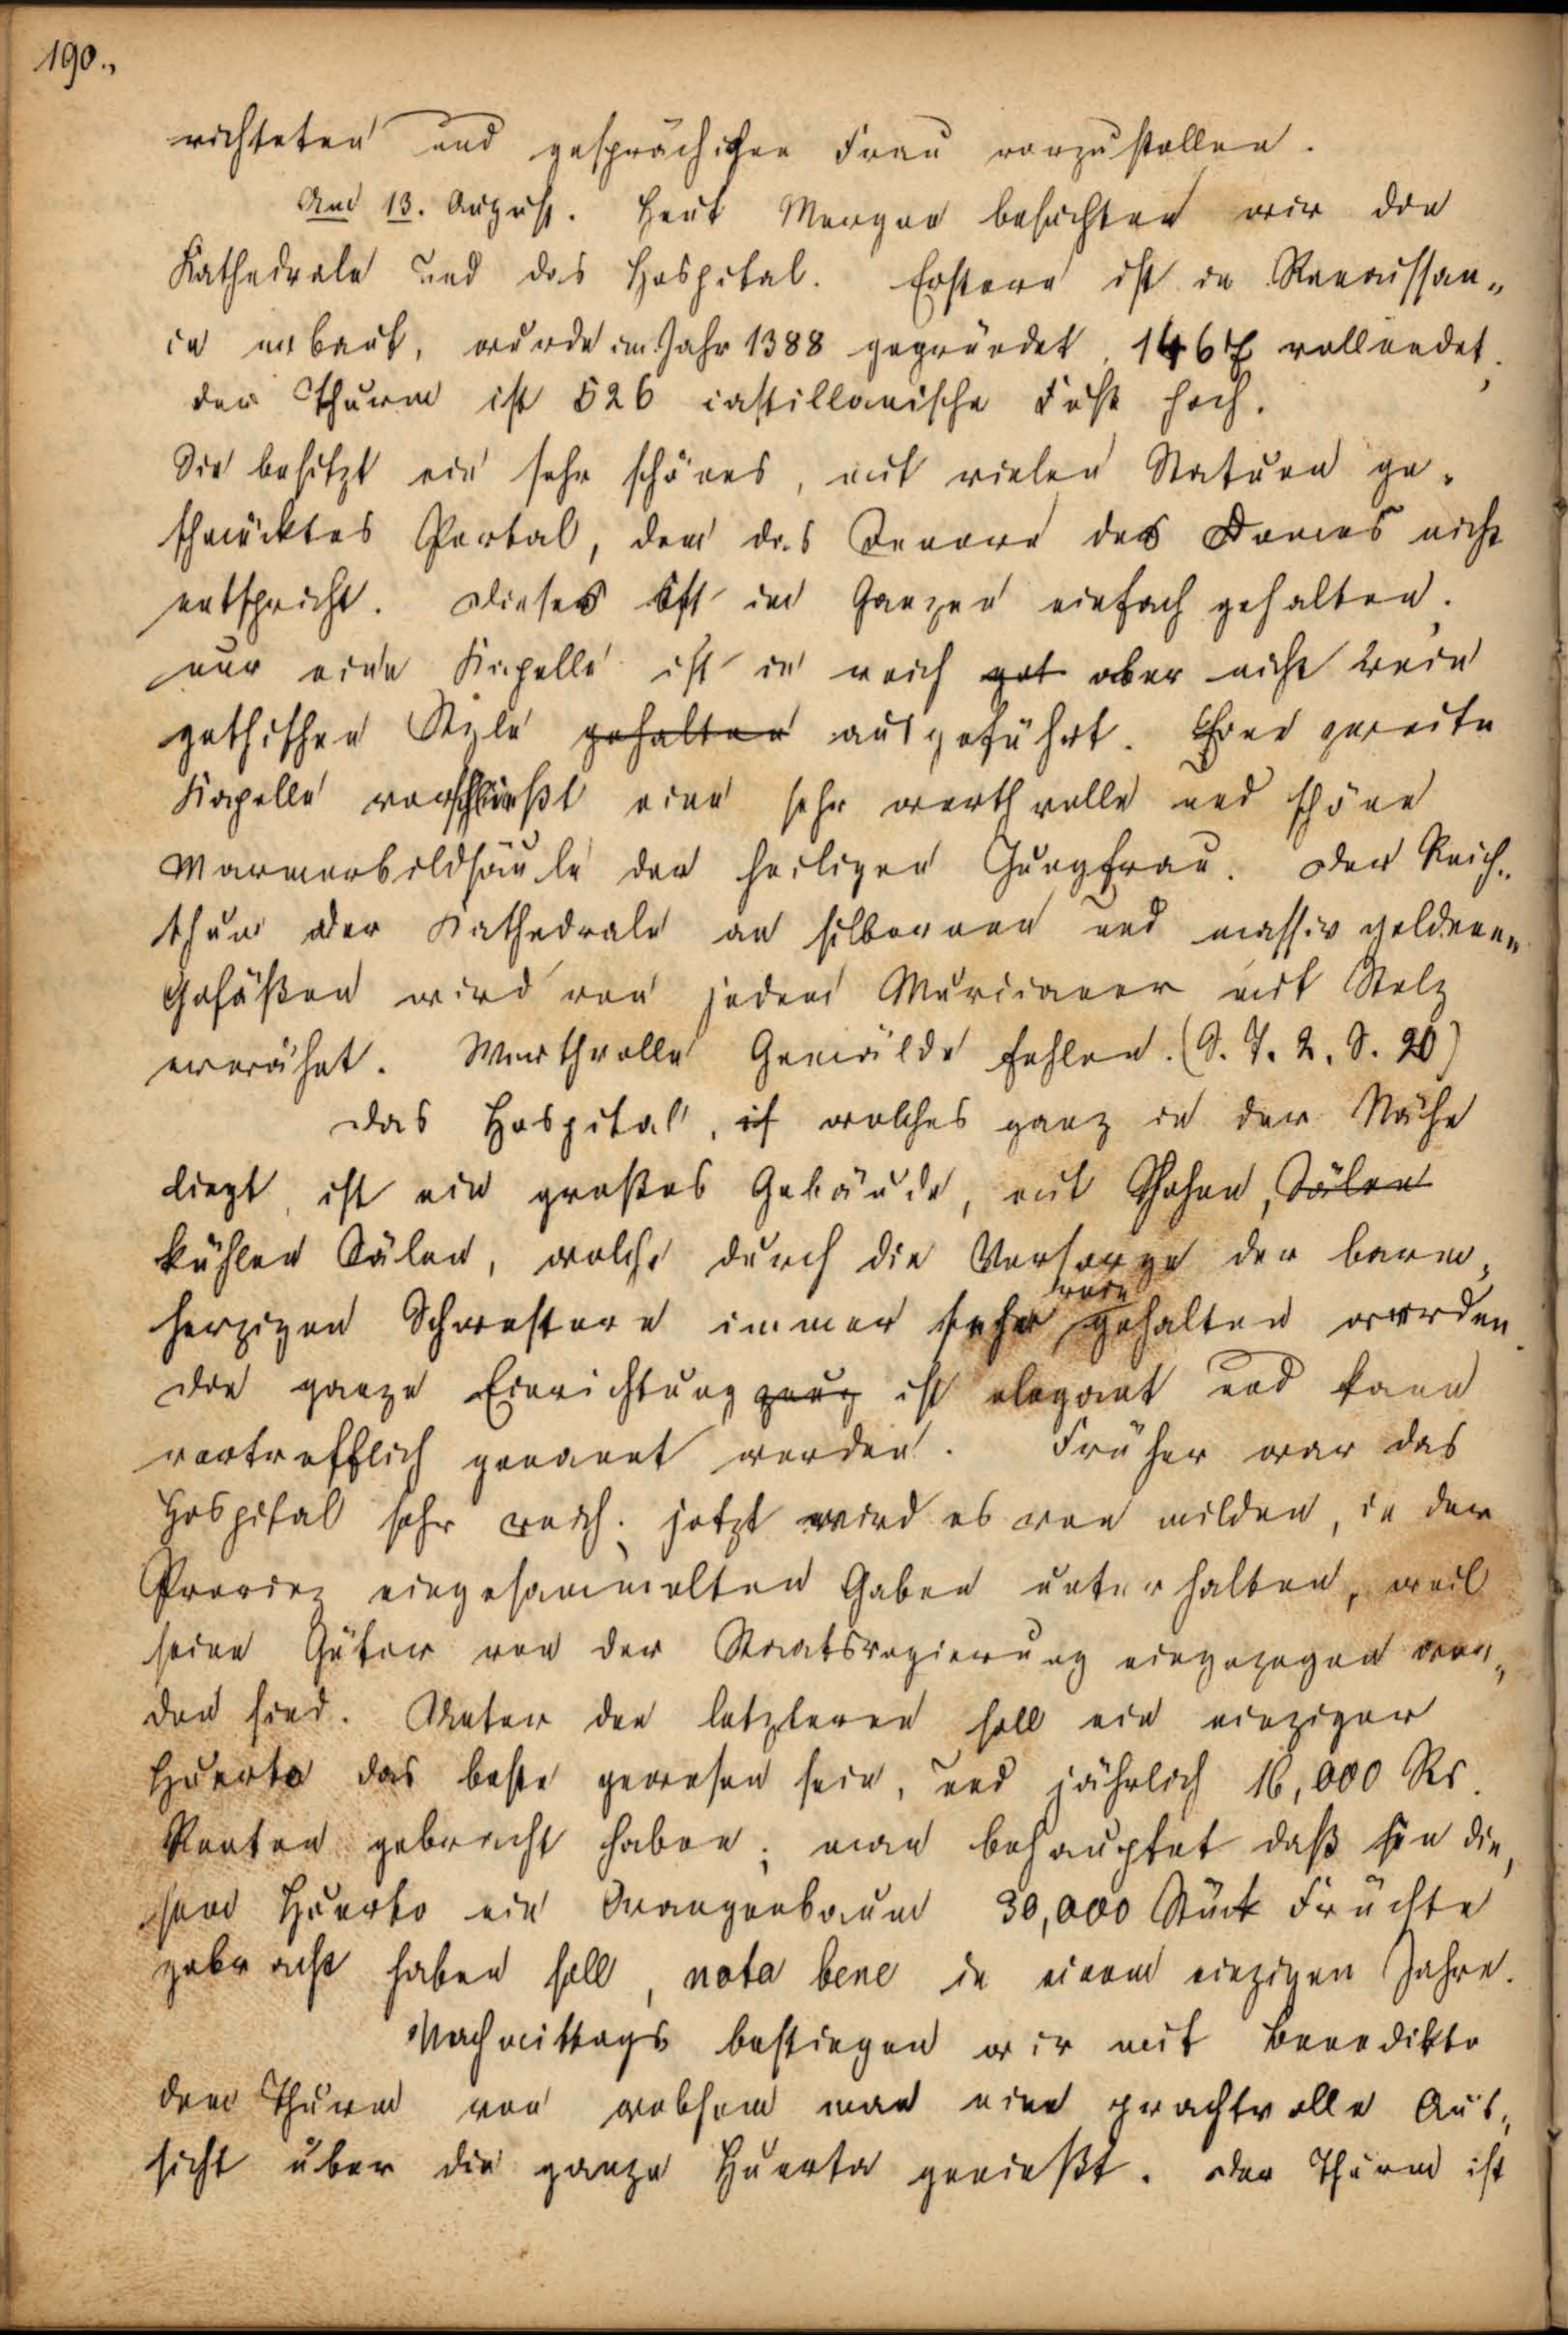 190.,
richteten und gesprächigen Frau vorzustellen.
Am 13. August. Heut Morgen besuchten wir die
Kathedrale und das Hospital. Erstere ist in Renaissan-
ce erbaut, wurde im Jahr 1388 gegründet, 1467 vollendet.
der Thurm ist 526 castillanische Fuß hoch.
Sie besitzt ein sehr schönes, mit vielen Statuen ge-
schmücktes Portal, dem das Innere des Domes nicht
entspricht. Dieses ist im Ganzen einfach gehalten.
nur eine Kapelle ist in reich got aber nicht rein
gothischen Style gehalten ausgeführt. Eine zweite
Kapelle verschließt eine sehr werthvolle und schöne
Marmorbildsäule der heiligen Jungfrau. Der Reich-
thum der Kathedrale an silbernen und massiv goldenen
Gefäßen wird von jedem Murcianer mit Stolz
erwähnt. Werthvolle Gemälde fehlen. (S. T. 2. S. 20)
Das Hospital, welches ganz in der Nähe
liegt, ist ein großes Gebäude, mit hohen, Sälen
kühlen Sälen, welche durch die Vorsorge der barm-
herzigen Schwestern immer sehr rein gehalten werden.
Die ganze Einrichtung ist elegant und kann
vortrefflich genannt werden. Früher war das
Hospital sehr reich; jetzt wird es von milden, in der
Provinz eingesammelten Gaben unterhalten, weil
seine Güter von der Staatsregierung eingezogen wor-
den sind. Unter den letzteren soll ein einziger
Huerto das beste gewesen sein, und jährlich 16,000 Rs.
Renten gebracht haben; man behauptet daß in die-
sem Huerto ein Orangenbaum 30,000 Stück Früchte
gebracht haben soll, nota bene in einem einzigen Jahre.
Nachmittags bestiegen wir mit Benedikto
den Thurm von welchem man eine prachtvolle Aus-
sicht über die ganze Huerta genießt. Der Thurm ist